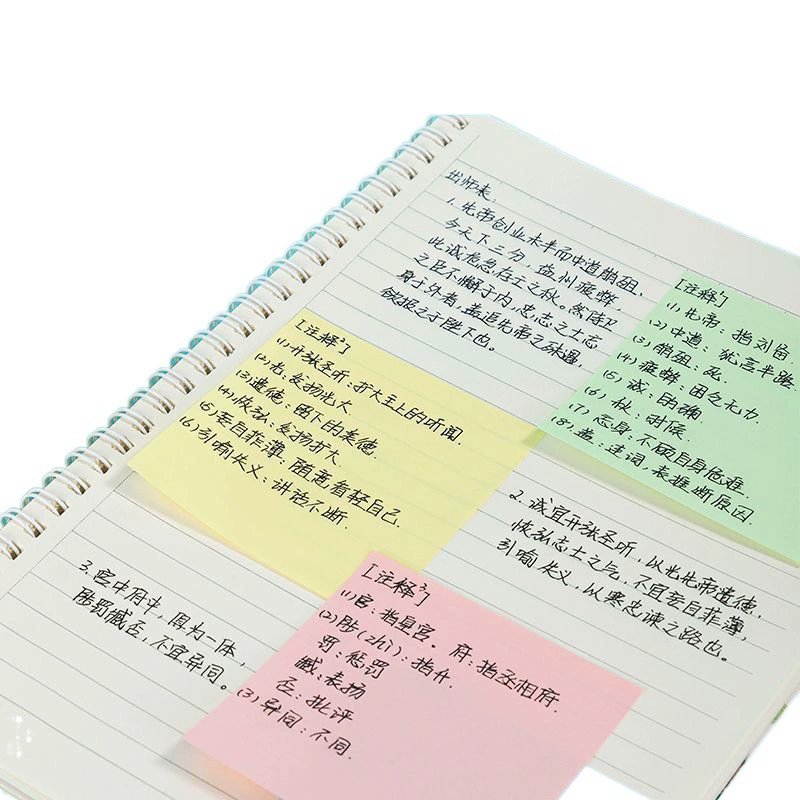 出师表:
1. 先帝创业未半而中道崩殂,
今天下三分, 益州疲弊,
此诚危急存亡之秋。然侍卫
之臣不懈于内, 忠志之士忘
身于外者, 盖追先帝之殊遇,
欲报之于陛下也。
[注释1]
(1) 先帝: 指刘备
(2) 中道: 犹言半路.
(3) 崩殂: 死.
(4) 疲弊: 困乏无力.
(5) 诚: 的确
(6) 秋: 时候.
(7) 忘身: 不顾自身危难.
(8) 盖: 连词, 表推断原因
[注释2]
(1) 开张圣听: 扩大主上的听闻.
(2) 光: 发扬光大
(3) 遗德: 留下的美德.
(4) 恢弘: 发扬扩大.
(5) 妄自菲薄: 随意看轻自己.
(6) 引喻失义: 讲话不断.
2. 诚宜开张圣听, 以光先帝遗德,
恢弘志士之气, 不宜妄自菲薄,
引喻失义, 以塞忠谏之路也.
3. 宫中府中, 俱为一体,
陟罚臧否, 不宜异同。
[注释3]
(1) 宫: 指皇宫. 府: 指丞相府.
(2) 陟(zhì): 指升.
罚: 惩罚
臧: 表扬
否: 批评
(3) 异同: 不同.